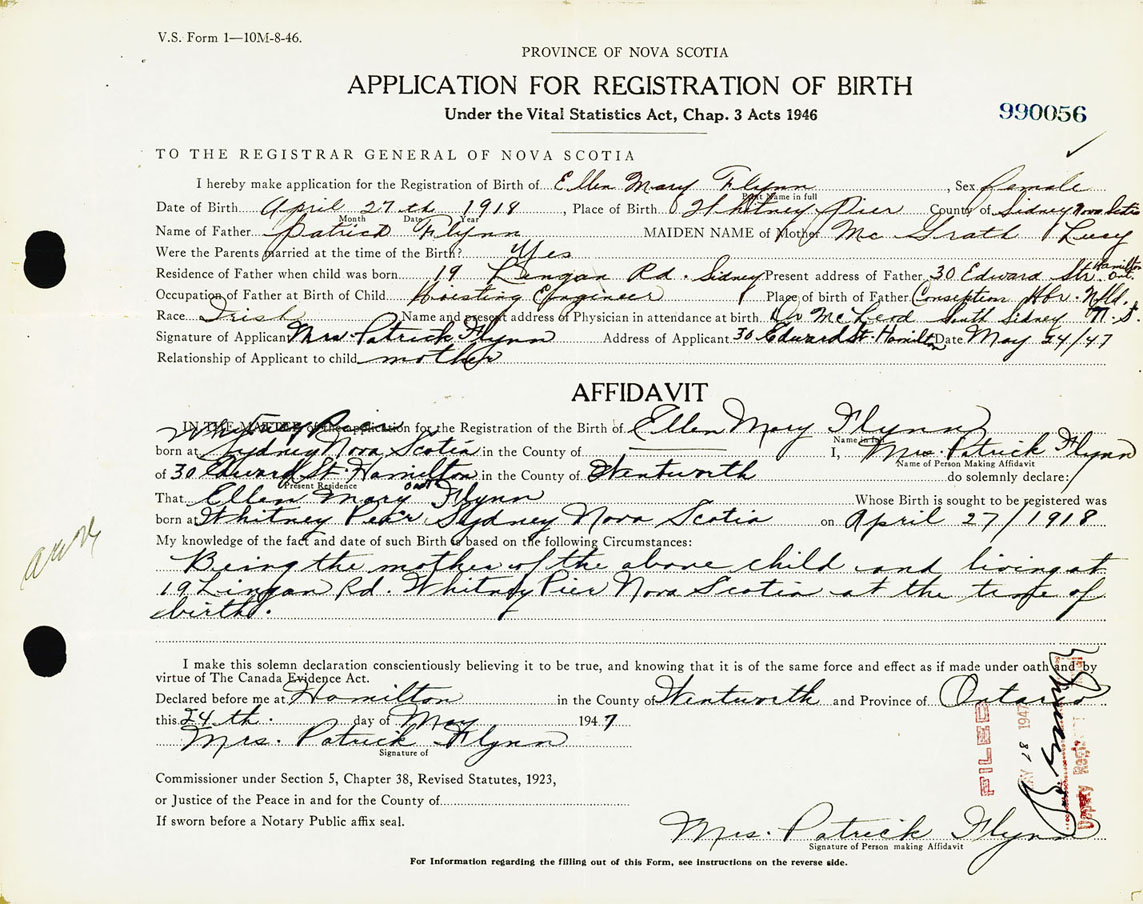 V.S. Form 1—10M-8-46.
PROVINCE OF NOVA SCOTIA
APPLICATION FOR REGISTRATION OF BIRTH
Under the Vital Statistics Act, Chap. 3 Acts 1946
990056
TO THE REGISTRAR GENERAL OF NOVA SCOTIA
I hereby make application for the Registration of Birth of Ellen Mary Flynn, Sex female
Print Name in full
Date of Birth April 27th 1918, Place of Birth Whitney Pier County of Sidney Nova Scotia
Month Date Year
Name of Father Patrick Flynn MAIDEN NAME of Mother Mc Grath Lucy
Were the Parents married at the time of the Birth? Yes
Residence of Father when child was born 19 Lingan Rd. Sidney Present address of Father 30 Edward Str. Hamilton Ont.
Occupation of Father at Birth of Child Hoisting Engineer Place of birth of Father Conseption Hbr. Nfld.
Race Irish Name and present address of Physician in attendance at birth Dr McLeod South Sidney N.S.
Signature of Applicant Mrs. Patrick Flynn Address of Applicant 30 Edward St. Hamilton Date May 24/47
Relationship of Applicant to child mother
AFFIDAVIT
IN THE MATTER of the application for the Registration of the Birth of Ellen Mary Flynn
Name in full
Whitney Pier
born at Sydney Nova Scotia in the County of I, Mrs. Patrick Flynn
Name of Person Making Affidavit
of 30 Edward St. Hamilton Ont in the County of Wentworth do solemnly declare:
Present Residence
That Ellen Mary Flynn Whose Birth is sought to be registered was
born at Whitney Pear Sydney Nova Scotia on April 27/1918
My knowledge of the fact and date of such Birth is based on the following Circumstances:
Being the mother of the above child and living at
19 Lingan Rd. Whitney Pier Nova Scotia at the time of
birth.
I make this solemn declaration conscientiously believing it to be true, and knowing that it is of the same force and effect as if made under oath and by
virtue of The Canada Evidence Act.
Declared before me at Hamilton in the County of Wentworth and Province of Ontario
this 24th. day of May 1947
Mrs. Patrick Flynn
Signature of
FILED
1947
Deputy
Commissioner under Section 5, Chapter 38, Revised Statutes, 1923,
or Justice of the Peace in and for the County of
If sworn before a Notary Public affix seal.
Mrs. Patrick Flynn
Signature of Person making Affidavit
For Information regarding the filling out of this Form, see instructions on the reverse side.